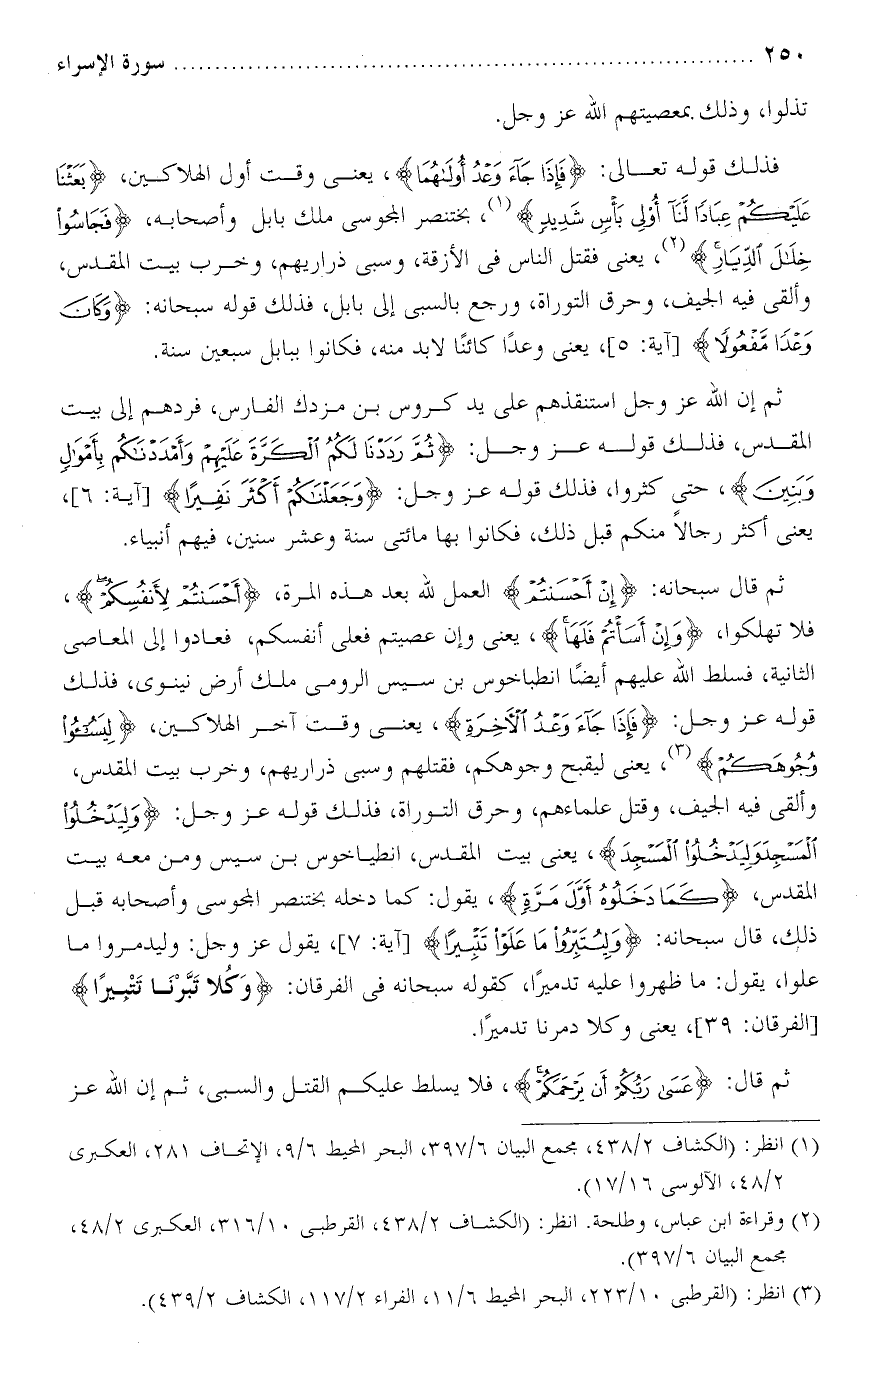 ٢٥٠ ........................................................................ سورة الإسراء
تذلوا، وذلك بمعصيتهم الله عز وجل.
فذلك قوله تعالى: ﴿فَإِذَا جَآءَ وَعْدُ أُولَىٰهُمَا﴾، يعنى وقت أول الهلاكين، ﴿بَعَثْنَا
عَلَيْكُمْ عِبَادًا لَّنَآ أُو۟لِى بَأْسٍ شَدِيدٍ﴾(١)، بختنصر المجوسى ملك بابل وأصحابه، ﴿فَجَاسُوا۟
خِلَـٰلَ ٱلدِّيَارِۚ﴾(٢)، يعنى فقتل الناس فى الأزقة، وسبى ذراريهم، وخرب بيت المقدس،
وألقى فيه الجيف، وحرق التوراة، ورجع بالسبى إلى بابل، فذلك قوله سبحانه: ﴿وَكَانَ
وَعْدًا مَّفْعُولًا﴾ [آية: ٥]، يعنى وعدًا كائنًا لابد منه، فكانوا ببابل سبعين سنة.
ثم إن الله عز وجل استنقذهم على يد كروس بن مزدك الفارس، فردهم إلى بيت
المقدس، فذلك قوله عز وجل: ﴿ثُمَّ رَدَدْنَا لَكُمُ ٱلْكَرَّةَ عَلَيْهِمْ وَأَمْدَدْنَـٰكُم بِأَمْوَٰلٍ
وَبَنِينَ﴾، حتى كثروا، فذلك قوله عز وجل: ﴿وَجَعَلْنَـٰكُمْ أَكْثَرَ نَفِيرًا﴾ [آية: ٦]،
يعنى أكثر رجالاً منكم قبل ذلك، فكانوا بها مائتى سنة وعشر سنين، فيهم أنبياء.
ثم قال سبحانه: ﴿إِنْ أَحْسَنتُمْ﴾ العمل لله بعد هذه المرة، ﴿أَحْسَنتُمْ لِأَنفُسِكُمْۖ﴾،
فلا تهلكوا، ﴿وَإِنْ أَسَأْتُمْ فَلَهَاۚ﴾، يعنى وإن عصيتم فعلى أنفسكم، فعادوا إلى المعاصى
الثانية، فسلط الله عليهم أيضًا انطباخوس بن سيس الرومى ملك أرض نينوى، فذلك
قوله عز وجل: ﴿فَإِذَا جَآءَ وَعْدُ ٱلْـَٔاخِرَةِ﴾، يعنى وقت آخر الهلاكين، ﴿لِيَسُـۥٓـُٔوا۟
وُجُوهَكُمْ﴾(٣)، يعنى ليقبح وجوهكم، فقتلهم وسبى ذراريهم، وخرب بيت المقدس،
وألقى فيه الجيف، وقتل علماءهم، وحرق التوراة، فذلك قوله عز وجل: ﴿وَلِيَدْخُلُوا۟
ٱلْمَسْجِدَوَلِيَدْخُلُوا۟ ٱلْمَسْجِدَ﴾، يعنى بيت المقدس، انطياخوس بن سيس ومن معه بيت
المقدس، ﴿كَمَا دَخَلُوهُ أَوَّلَ مَرَّةٍ﴾، يقول: كما دخله بختنصر المجوسى وأصحابه قبل
ذلك، قال سبحانه: ﴿وَلِيُتَبِّرُوا۟ مَا عَلَوْا۟ تَتْبِيرًا﴾ [آية: ٧]، يقول عز وجل: وليدمروا ما
علوا، يقول: ما ظهروا عليه تدميرًا، كقوله سبحانه فى الفرقان: ﴿وَكُلا تَبَّرْنَا تَتْبِيرًا﴾
[الفرقان: ٣٩]، يعنى وكلا دمرنا تدميرًا.
ثم قال: ﴿عَسَىٰ رَبُّكُمْ أَن يَرْحَمَكُمْۚ﴾، فلا يسلط عليكم القتل والسبى، ثم إن الله عز
(١) انظر: (الكشاف ٤٣٨/٢، مجمع البيان ٣٩٧/٦، البحر المحيط ٩/٦، الإتحاف ٢٨١، العكبرى
٤٨/٢، الآلوسى ١٧/١٦).
(٢) وقراءة ابن عباس، وطلحة. انظر: (الكشاف ٤٣٨/٢، القرطبى ٣١٦/١٠، العكبرى ٤٨/٢،
مجمع البيان ٣٩٧/٦).
(٣) انظر: (القرطبى ٢٢٣/١٠، البحر المحيط ١١/٦، الفراء ١١٧/٢، الكشاف ٤٣٩/٢).